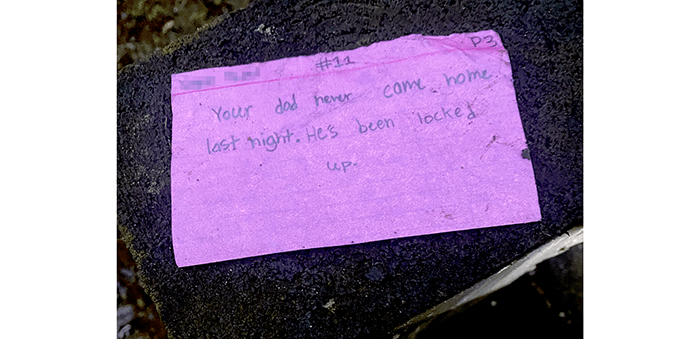 #11 P3
Your dad never come home
last night. He's been locked
up.